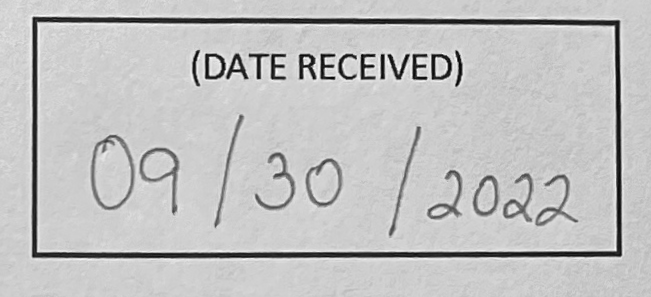 (DATE RECEIVED)
09/30/2022